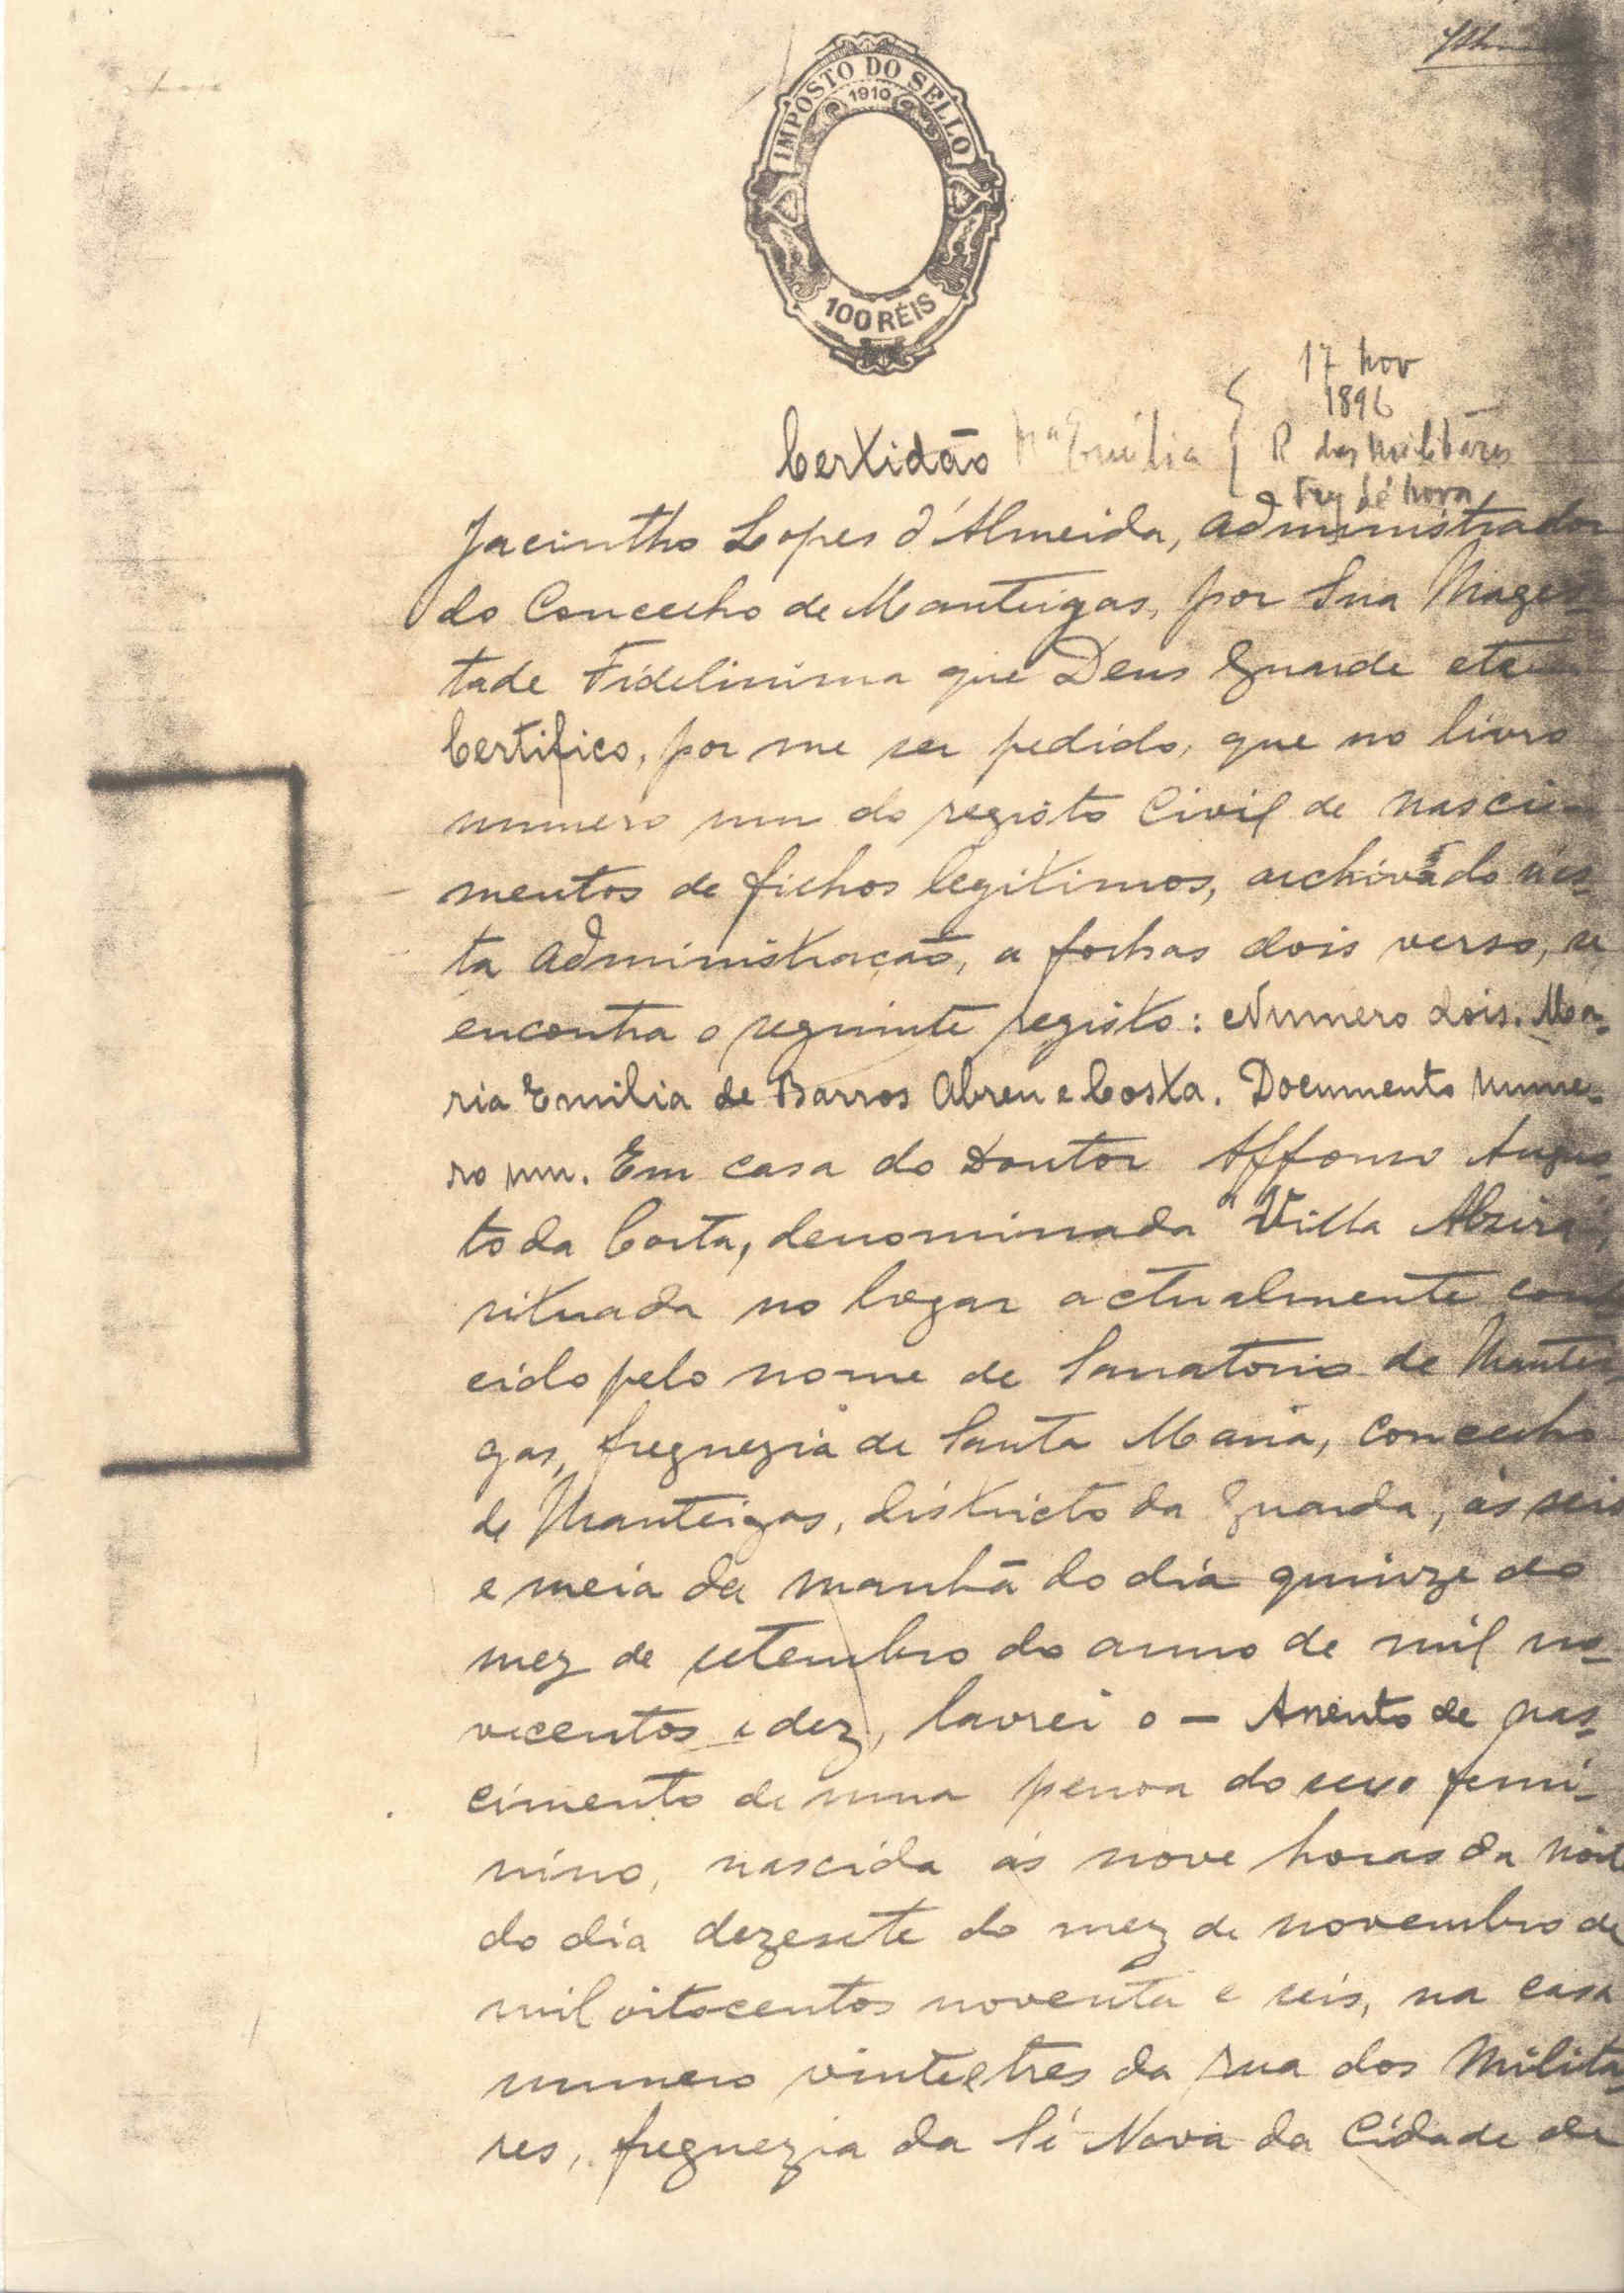 IMPOSTO DO SELLO
1910
100 RÉIS
17 Nov
1896
Certidão Mª Emilia { R dos Militares
Freg Sé Nova
Jacintho Lopes d'Almeida, Administrador
do Concelho de Manteigas, por Sua Mages-
tade Fidelissima que Deus Guarde etc
Certifico, por me ser pedido, que no livro
numero um do registo Civil de nasci-
mentos de filhos legitimos, archivado nes-
ta Administração, a folhas dois verso, se
encontra o seguinte registo: Numero dois. Ma-
ria Emilia de Barros Abreu e Costa. Documento nume-
ro um. Em casa do Doutor Affonso Augus-
to da Costa, denominada "Villa Alzira",
situada no logar actualmente conhe
cido pelo nome de Sanatorio de Mantei-
gas, freguezia de Santa Maria, Concelho
de Manteigas, districto da Guarda, ás seis
e meia da manhã do dia quinze do
mez de setembro do anno de mil no-
vecentos e dez, lavrei o — Assento de nas-
cimento de uma pessoa do sexo femi-
nino, nascida ás nove horas da noite
do dia dezesete do mez de novembro de
mil oitocentos noventa e seis, na casa
numero vinte e tres da rua dos Milita-
res, freguezia da Sé Nova da Cidade de